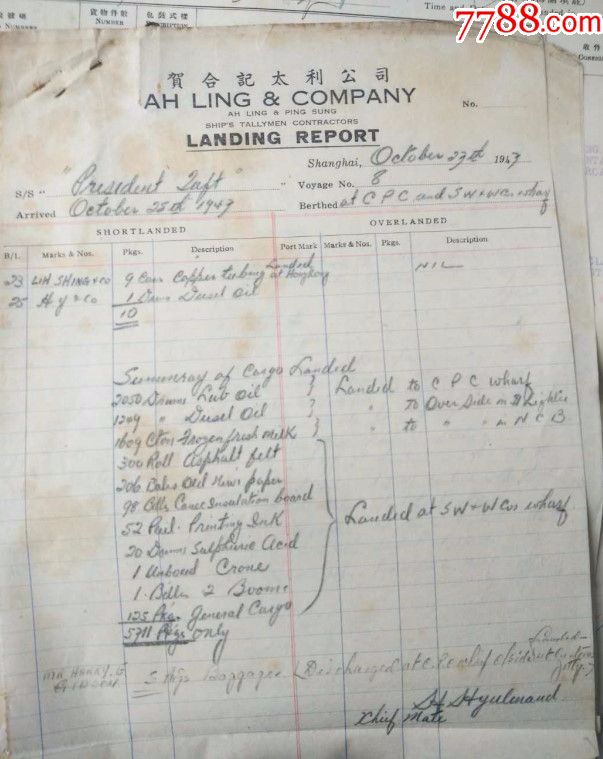 7788.com
貨物件數
包裝式樣
NUMBER
DESCRIPTION
NUMBER
Time and
收件
賀合記太利公司
AH LING & COMPANY
AH LING & PING SUNG
SHIP'S TALLYMEN CONTRACTORS
No.
LANDING REPORT
Shanghai, October 27th 1947
S/S "President Taft" Voyage No. 8
Arrived October 25th 1947 Berthed at C P C and S W & W Cos wharf
SHORTLANDED OVERLANDED
B/L Marks & Nos. Pkgs. Description Port Mark Marks & Nos. Pkgs. Description
23 LIH SHING & CO 9 Cons Copper tubing Landed at Hongkong NIL
25 H. Y & Co 1 Drum Diesel Oil
10
Summary of Cargo Landed
2050 Drums Lub Oil } Landed to C P C wharf
1249 " Diesel Oil } " to Over Side in
1609 Ctns Frozen fresh milk } " to " " in N C B.
300 Roll Asphalt felt
206 Bales Old News paper
98 Bdls Canec Insulation board
52 Printing Ink Landed at S W & W Cos wharf
20 Drums Sulphuric Acid
1 Unboxed Crane
1 Bdle 2 Booms
125 Pkgs General Cargo
5711 Pkgs only
MR HARRY. G
GIDEON
5 Pkgs Baggage (Discharged at
Jetty)
Chief Mate